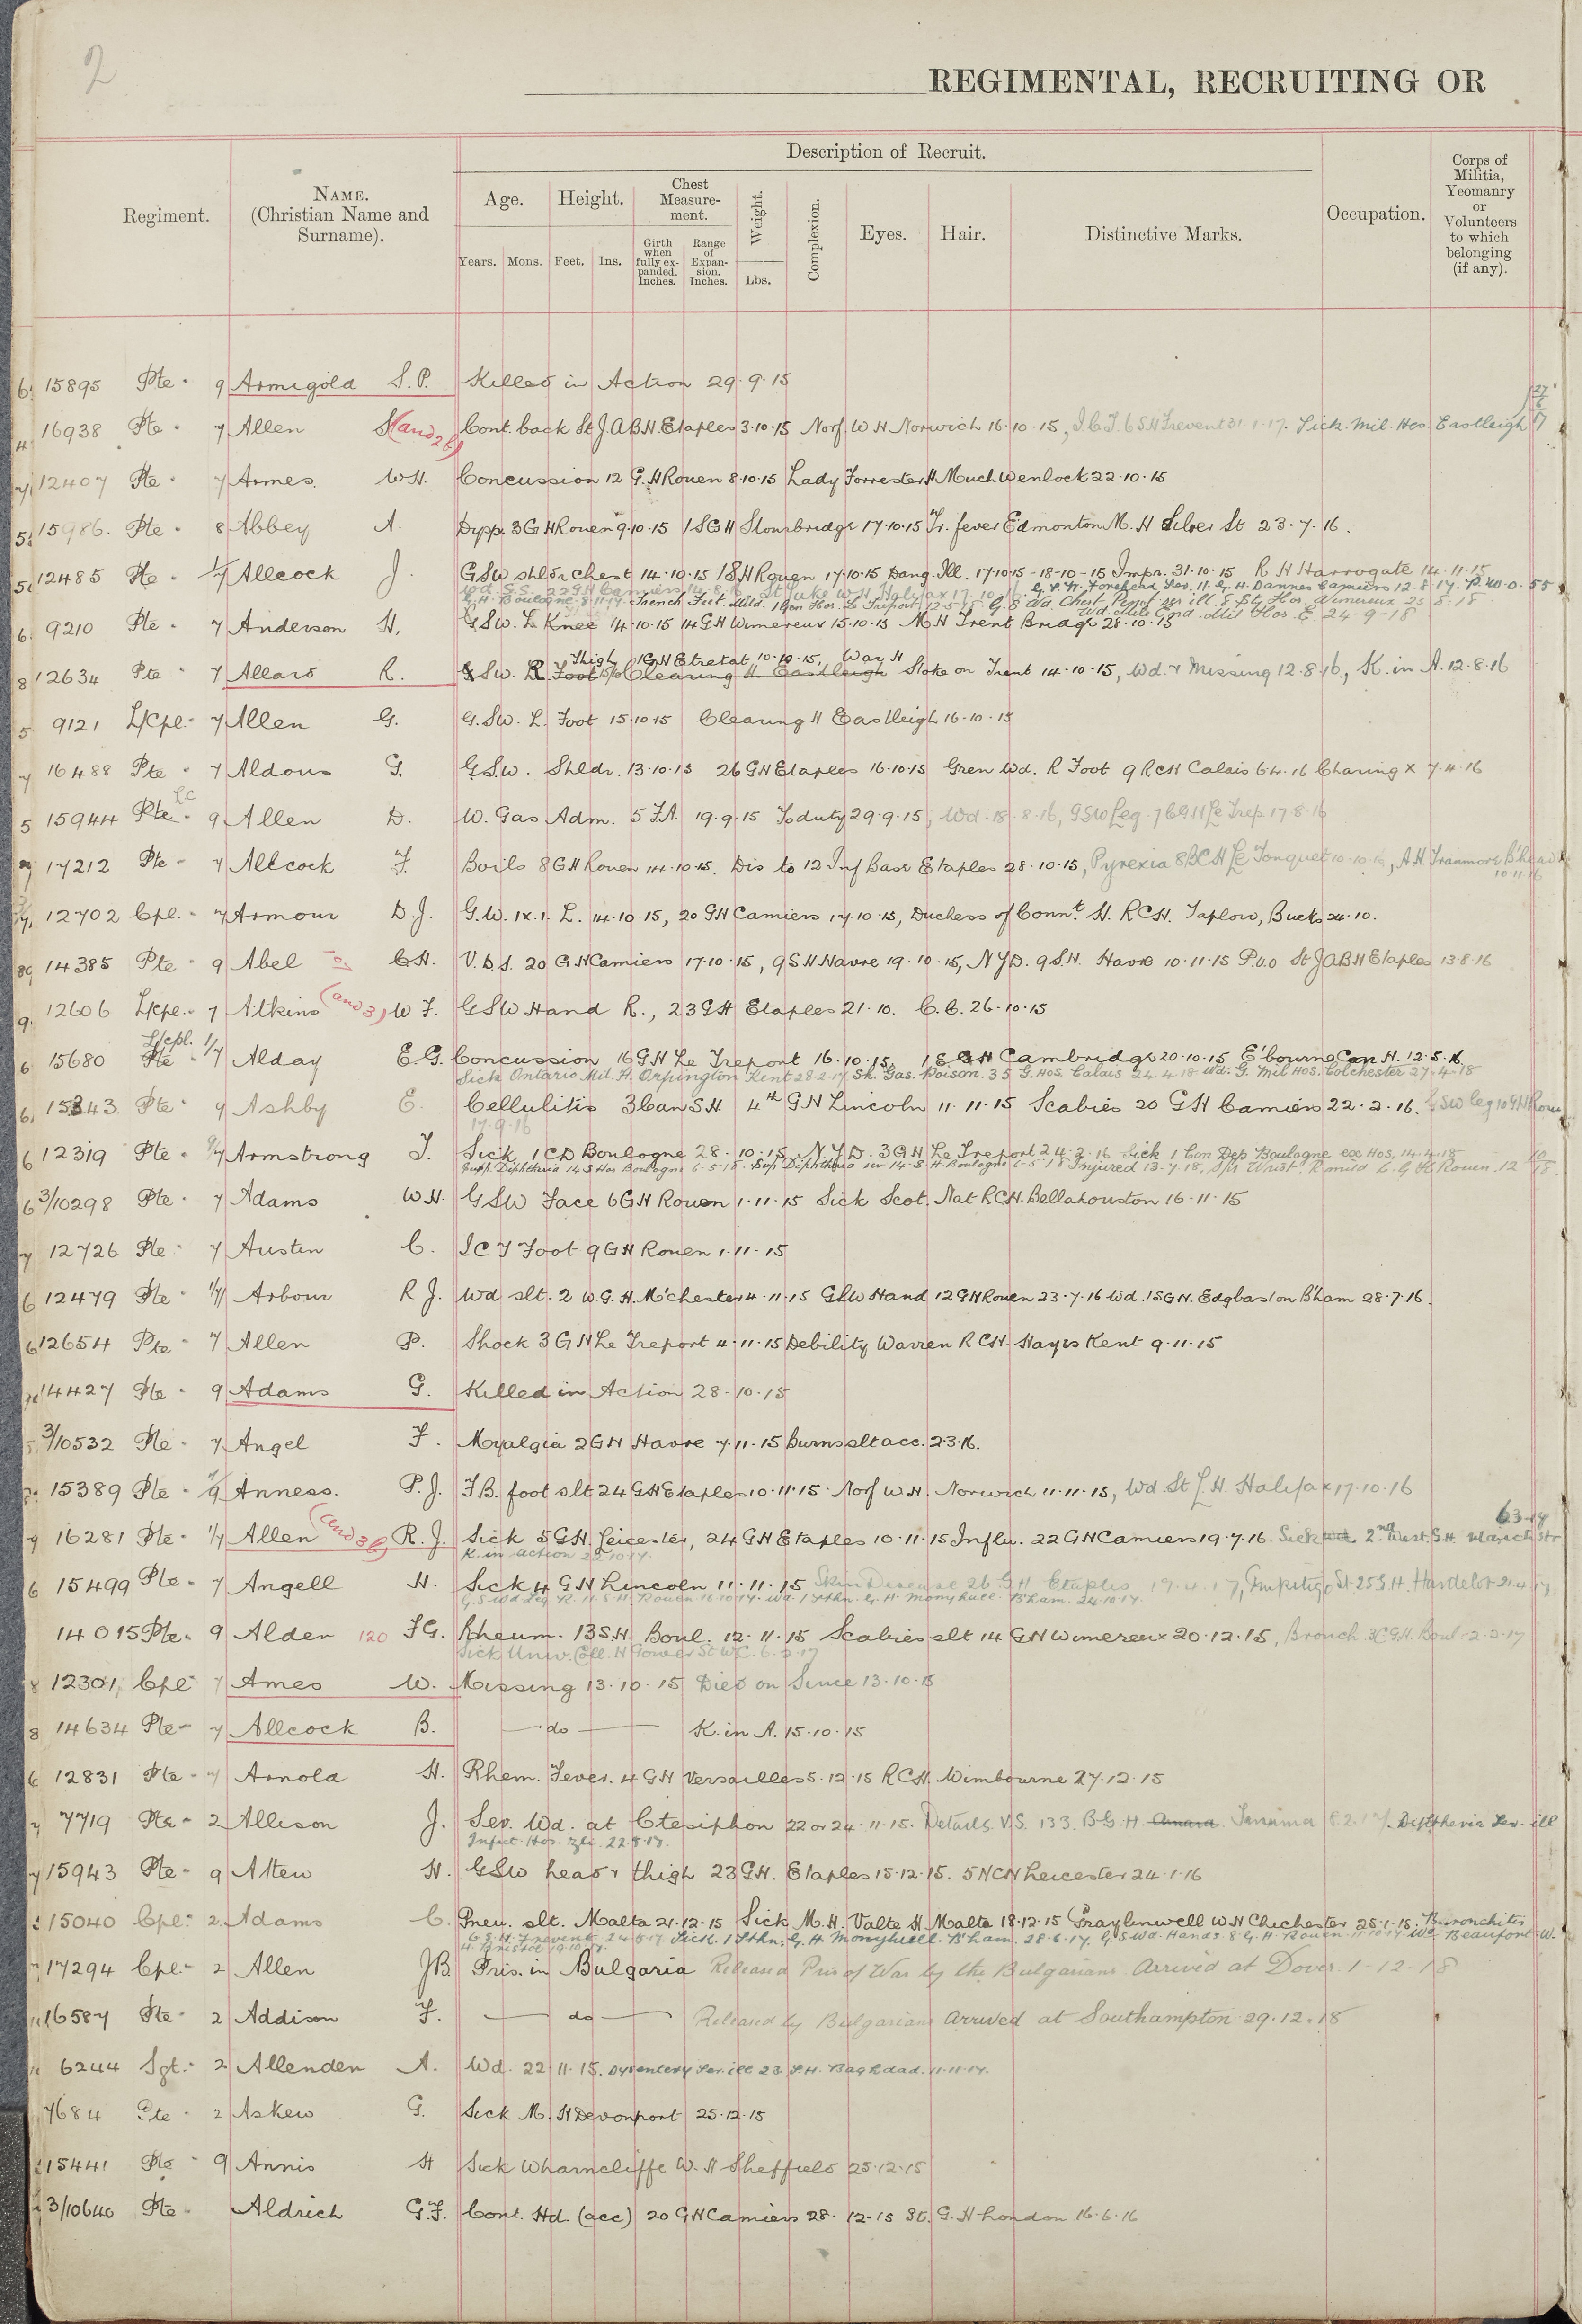 2
REGIMENTAL, RECRUITING OR
Description of Recruit.
Regiment.
NAME.
(Christian Name and
Surname).
Age.
Height.
Chest
Measure-
ment.
Weight.
Complexion.
Eyes.
Hair.
Distinctive Marks.
Occupation.
Corps of
Militia,
Yeomanry
or
Volunteers
to which
belonging
(if any).
Years.
Mons.
Feet.
Ins.
Girth
when
fully ex-
panded.
Inches.
Range
of
Expan-
sion.
Inches.
Lbs.
15895 Pte 9 Armigold S.P. Killed in Action 29.9.15
16938 Pte 7 Allen S (and 26) Cont. back St J.A B.H. Etaples 3.10.15 Norf. W H Norwich 16.10.15, I.C.T. 6 S H Frevent 31.1.17. Sick. Mil. Hos. Eastleigh
12407 Pte 7 Armes. W.H. Concussion 12 G.H Rouen 8.10.15 Lady Forrester H Much Wenlock 22.10.15
15986. Pte 8 Abbey A. Dypp. 3 G H Rouen 9.10.15 1 S G H Stourbridge 17.10.15 Tr. fever Edmonton M.H Silver St 23.7.16.
12485 Pte 1/7 Allcock J. GSW shldr chest 14.10.15 1 S H Rouen 17.10.15 Dang. Ill. 17.10.15 - 18-10-15 Impr. 31.10.15 R.H Harrogate 14.11.15
Wd. G.S. 22 G H Camiers 14.8.16 St Luke W H Halifax 17.10.16 Forehead Sev. 11. G. H. Dannes Camiers 12.8.17. P.U.O. 55
G.H. Boulogne 8.11.17. Trench Feet. Mild. 1 Gen Hos. Le Treport 12-5-18 Chest Penet. ser ill. 8 Sty Hos Wimereux 25-8-18
9210 Pte 7 Anderson H. GSW. L Knee 14.10.15 14 G H Wimereux 15.10.15 M H Trent Bridge 28.10.15 Mil Hos. E. 24-9-18
Thigh 1 G H Etretat 10.10.15, War H
12634 Pte 7 Allard R. G SW. R. Foot 15/10 Clearing H. Eastleigh Stoke on Trent 14.10.15, Wd. & Missing 12.8.16, K. in A. 12.8.16
9121 L/Cpl. 7 Allen G. G.SW. L. Foot 15.10.15 Clearing H Eastleigh 16.10.15
16488 Pte 7 Aldous G. GSW. Shldr. 13.10.15 26 G H Etaples 16.10.15 Gren Wd. R Foot 9 RCH Calais 6.4.16 Charing X 7.4.16
LC
15944 Pte 9 Allen D. W. Gas Adm. 5 F.A. 19.9.15 To duty 29.9.15, Wd. 18.8.16, GSW Leg. 7 C G H Le Trep. 17.8.16
17212 Pte 7 Allcock F. Boils 8 G H Rouen 14.10.15. Dis to 12 Inf Base Etaples 28.10.15, Pyrexia 8 BC H Le Touquet 10.10.16, A.H. Tranmore B'head
10.11.16
12702 Cpl. 7 Armour D.J. G.W. 1x.1. L. 14.10.15, 20 GH Camiers 17.10.15, Duchess of Connt. H. RCH. Taplow, Bucks 24.10.
14385 Pte 9 Abel C.H. V.D.S. 20 G H Camiers 17.10.15, 9 S H Havre 19.10.15, N Y D. 9 S.H. Havre 10.11.15 P.U.O St J A B H Etaples 13.8.16
12606 L/Cpl. 7 Atkins (and 3) W F. GSW Hand R., 23 G H Etaples 21.10. C.C. 26.10.15
L/cpl.
15680 Pte 1/7 Alday E.G. Concussion 16 G H Le Treport 16.10.15, 1 E G H Cambridge 20.10.15 E'bourne Con H. 12.5.16
Sick Ontario Mil. H. Orpington Kent 28.2.17. Sh. Gas. Poison. 35 G. Hos. Calais 24.4.18 Wd. G. Mil Hos. Colchester 27.4-18
15343. Pte 7 Ashby E. Cellulitis 3 Can S.H 4th G H Lincoln 11.11.15 Scabies 20 G H Camiers 22.2.16. GSW leg 10 G H Rouen
17.9.16
12319 Pte 9/7 Armstrong T. Sick 1 CD Boulogne 28.10.15 N.Y.D. 3 G H Le Treport 24.2.16 Sick 1 Con Dep Boulogne exc Hos. 14.4.18
Supp. Diphtheria 14 S Hos Boulogne 6-5-18. Diphtheria sev 14 S. H Boulogne 6-5-18 Injured 13.7.18, Spr Wrist R mild 6. G H Rouen. 12
3/10298 Pte 7 Adams W.H. GSW Face 6 G H Rouen 1.11.15 Sick Scot. Nat RCH. Bellahouston 16.11.15
12726 Pte 7 Austin C. I C T Foot 9 G H Rouen 1.11.15
12479 Pte 1/7 Arbour R J. Wd slt. 2 W.G.H. M'chester 4.11.15 GSW Hand 12 G H Rouen 23.7.16 Wd. 1 S G H. Edgbaston B'ham 28.7.16.
12654 Pte 7 Allen P. Shock 3 G H Le Treport 4.11.15 Debility Warren RCH. Hayes Kent 9.11.15
14427 Pte 9 Adams G. Killed in Action 28.10.15
3/10532 Pte 7 Angel F. Myalgia 2 G H Havre 7.11.15 Burns slt acc. 2.3.16.
15389 Pte 9 Anness. P.J. F.B. foot slt 24 G H Etaples 10.11.15 Norf W H. Norwich 11.11.15, Wd. St L. H. Halifax 17.10.16
16281 Pte 1/7 Allen (and 36) R.J. Sick 5 G.H. Leicester, 24 G H Etaples 10.11.15 Influ. 22 G H Camiers 19.7.16. Sick 2nd West. S.H.
K. in action
15499 Pte 7 Angell H. Sick 4 G H Lincoln 11.11.15 Skin Disease 26 G H Etaples 19.4.17, Impetigo St. 25 G.H. Hardelot 21.4.17
G.S.Wd Leg R. 11 S H. Rouen 16.10.17. Wd. 1 Sthn. G. H. Monyhull. B'ham. 24.10.17.
14015 Pte 9 Alden 120 F G. Rheum. 13 S.H. Boul. 12.11.15 Scabies slt 14 G H Wimereux 20.12.15, Bronch. 3 C G H. Boul. 2.2.17
Sick Univ. Coll. H Gower St W C. 6.2.17
12301 Cpl 7 Ames W. Missing 13.10.15 Died on Since 13.10.15
14634 Pte 7 Allcock B. — do — K. in A. 15.10.15
12831 Pte 7 Arnold H. Rhem. Fever. 4 G H Versailles 5.12.15 RCH. Wimbourne 27.12.15
7719 Pte 2 Allison J. Sev. Wd. at Ctesiphon 22 or 24.11.15. Details V.S. 133. B.G.H. Amara Diphtheria Sev. ill
Infect. Hos. 22.8.17.
15943 Pte 9 Attew H. GSW head & thigh 23 G.H. Etaples 15.12.15. 5 N C H Leicester 24.1.16
15040 Cpl. 2. Adams C. Pneu. slt. Malta 21.12.15 Sick M.H. Valte H Malta 18.12.15 Graylinwell W H Chichester 25.1.16. Bronchitis
6 S.H. Frevent 24.5.17. Sick. 1 Sthn. G. H Monyhull. B'ham. 28.6.17. G.S.Wd. Hands. 8. G. H. Rouen 11.10.17 Wd Beaufort W.
H. Bristol 19.10.17.
17294 Cpl. 2 Allen J B Pris. in Bulgaria Released Pris of War by the Bulgarians Arrived at Dover. 1-12-18
16587 Pte 2 Addison F. — do — Released by Bulgarians arrived at Southampton 29.12.18
6244 Sgt. 2 Allenden A. Wd. 22.11.15. Dysentery Ser. ill 23. S.H. Baghdad. 11.11.17.
7684 Pte 2 Askew G. Sick M. H Devonport 25.12.15
15441 Pte 9 Annis H Sick Wharncliffe W. H Sheffield 25.12.15
3/10640 Pte Aldrich G.F. Cont. Hd. (acc) 20 G H Camiers 28.12.15 St. G. H London 16.6.16